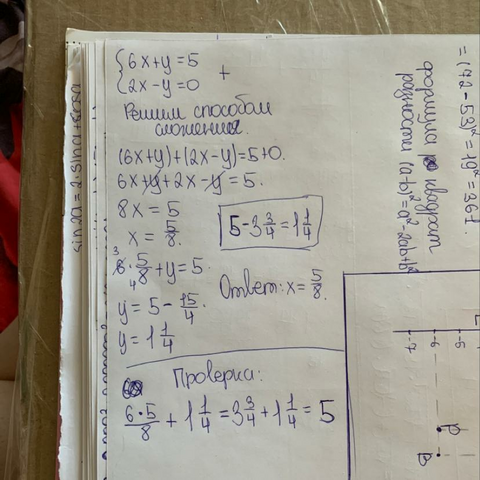 {6x+y=5
2x-y=0 +
Решим способом
сложения.
(6x+y)+(2x-y)=5+0.
6x+y+2x-y=5.
8x=5
x=5/8.
5-3 3/4=1 1/4
6·5/8+y=5.
3 4
y=5-15/4.
y=1 1/4
Ответ: x=5/8.
Проверка:
6·5/8+1 1/4=3 3/4+1 1/4=5
=(72-53)²=19²=361.
формула квадрат
разности (a-b)²=a²-2ab+b²
sin2a=2·sina
-7 -6 -5